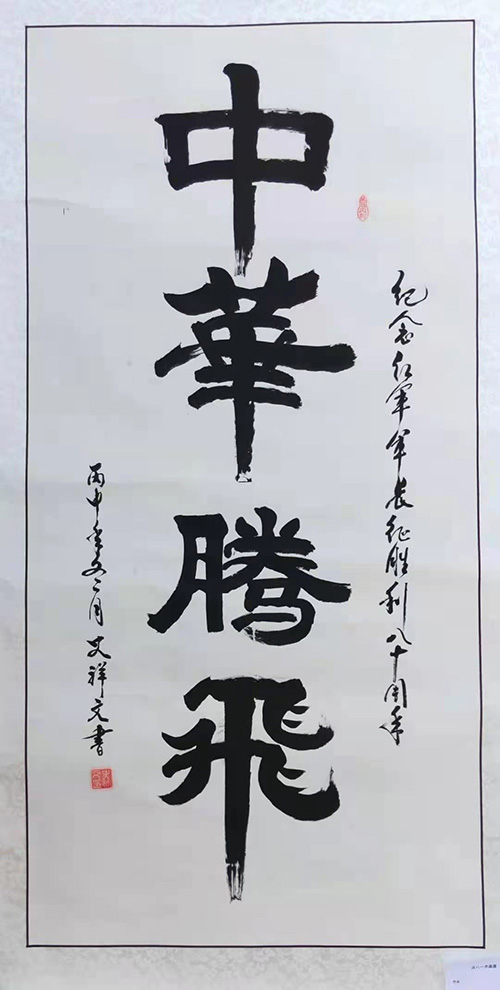 中華騰飛
纪念红军军长征胜利八十周年
丙申年二月艾祥文書